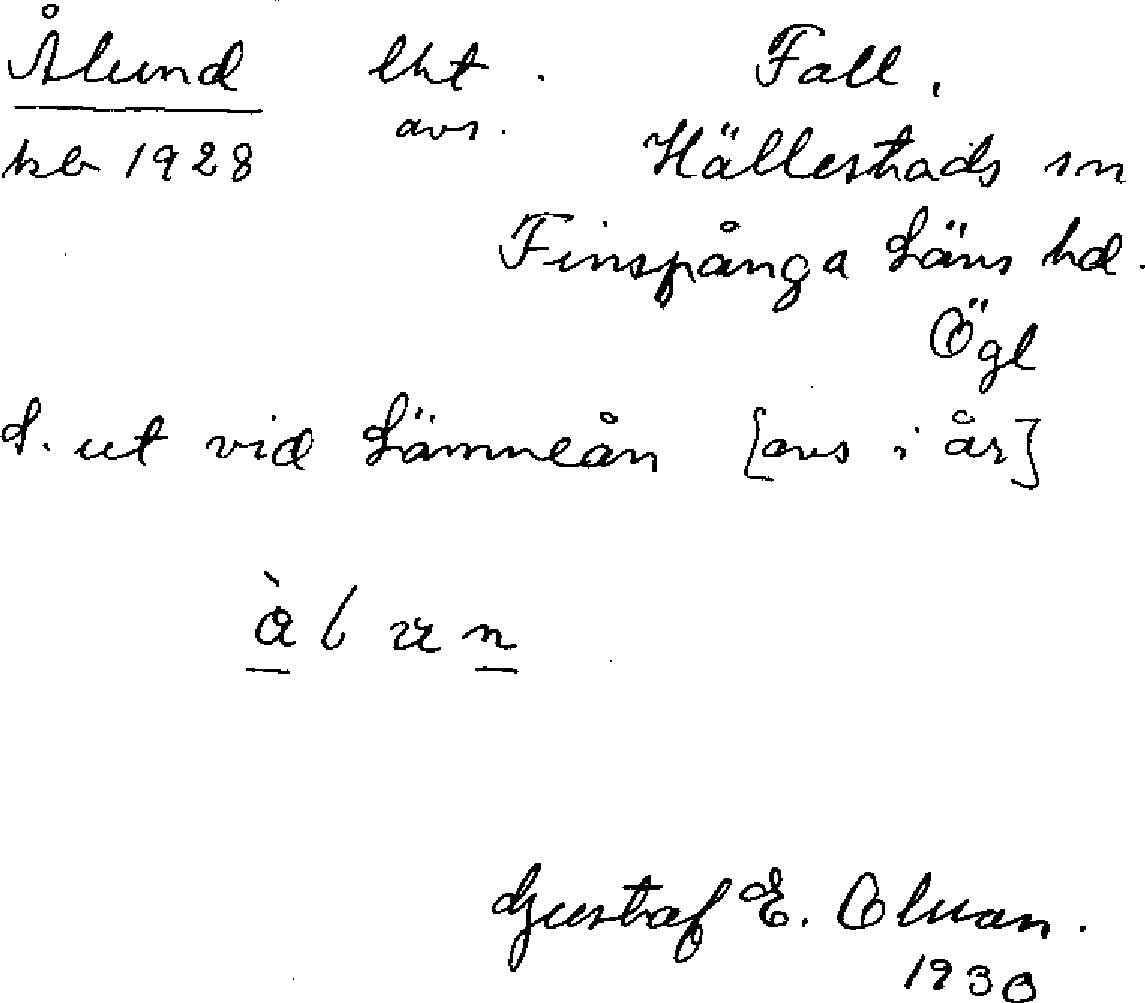 Ålund lht. Fall,
avs.
kb 1928 Hällestads sn
Finspånga Läns hd.
Ögl
L. ut vid Lämneån [avs i år]
Gustaf E. Olman.
1930